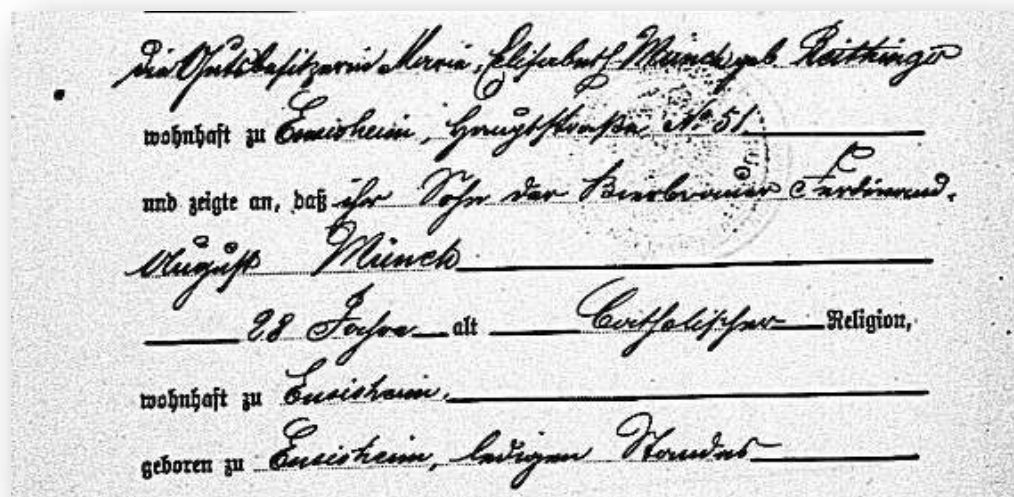 die Gutsbesitzerin Maria Elisabeth Münck geb. Reithinger
wohnhaft zu Ensisheim, Hauptstraße No 51
und zeigte an, daß ihr Sohn der Bierbrauer Ferdinand
August Münck
28 Jahre alt Catholischer Religion,
wohnhaft zu Ensisheim,
geboren zu Ensisheim, ledigen Standes